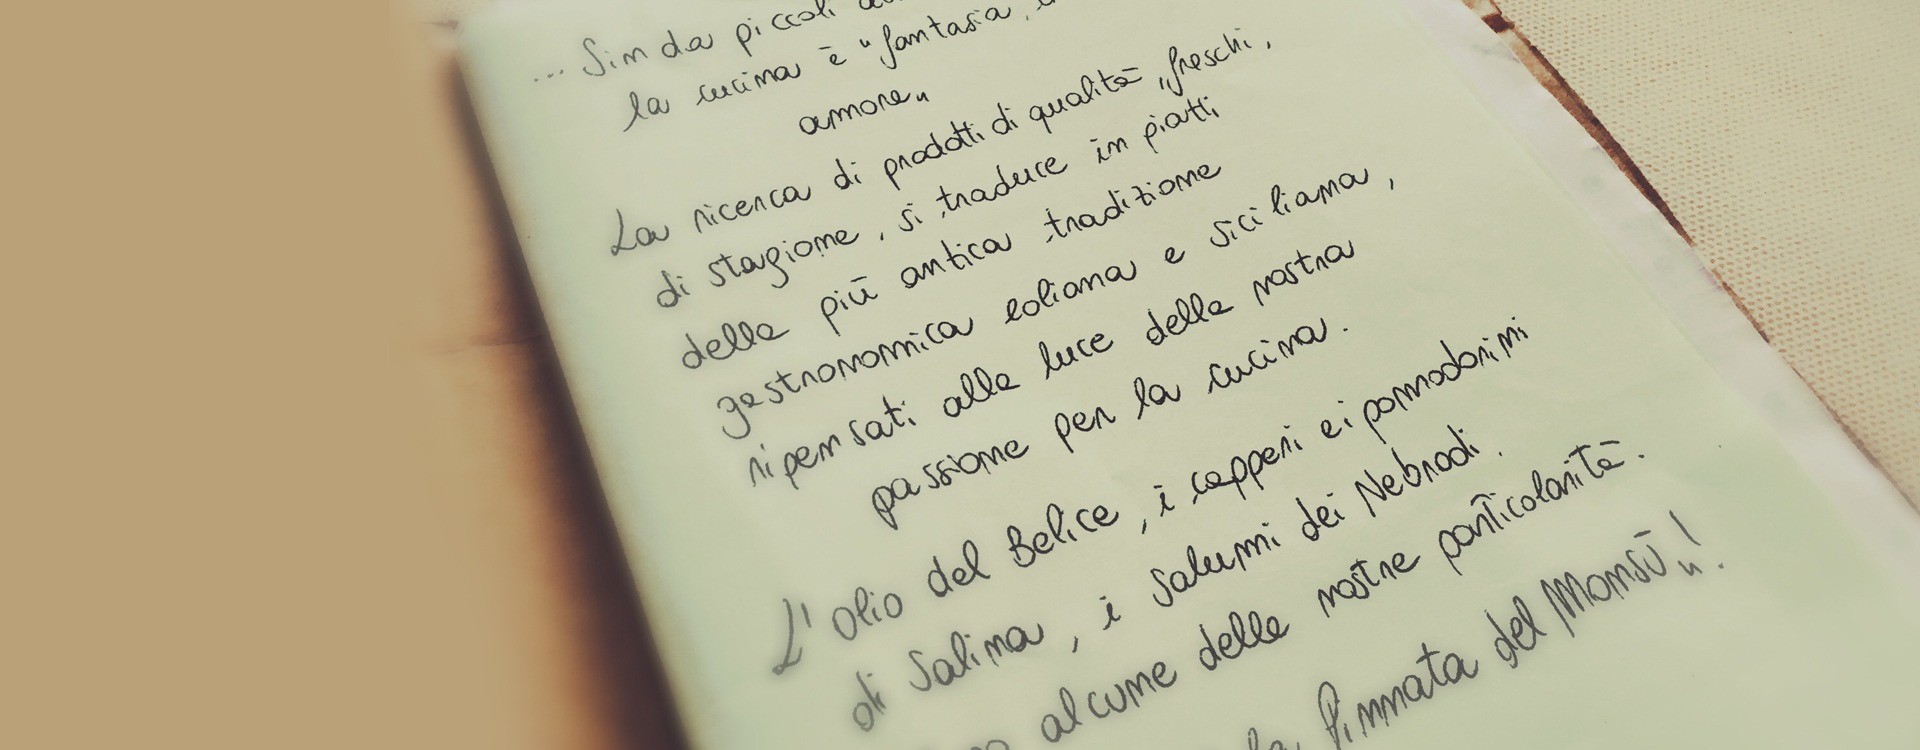 ... Sin da piccoli
la cucina è "fantasia,
amore"
La ricerca di prodotti di qualità, freschi,
di stagione, si traduce in piatti
della più antica tradizione
gastronomica eoliana e siciliana,
ripensati alla luce della nostra
passione per la cucina.
L'olio del Belice, i capperi e i pomodorini
di Salina, i salumi dei Nebrodi.
alcune delle nostre particolarità.
la Pinnata del Monsù"!